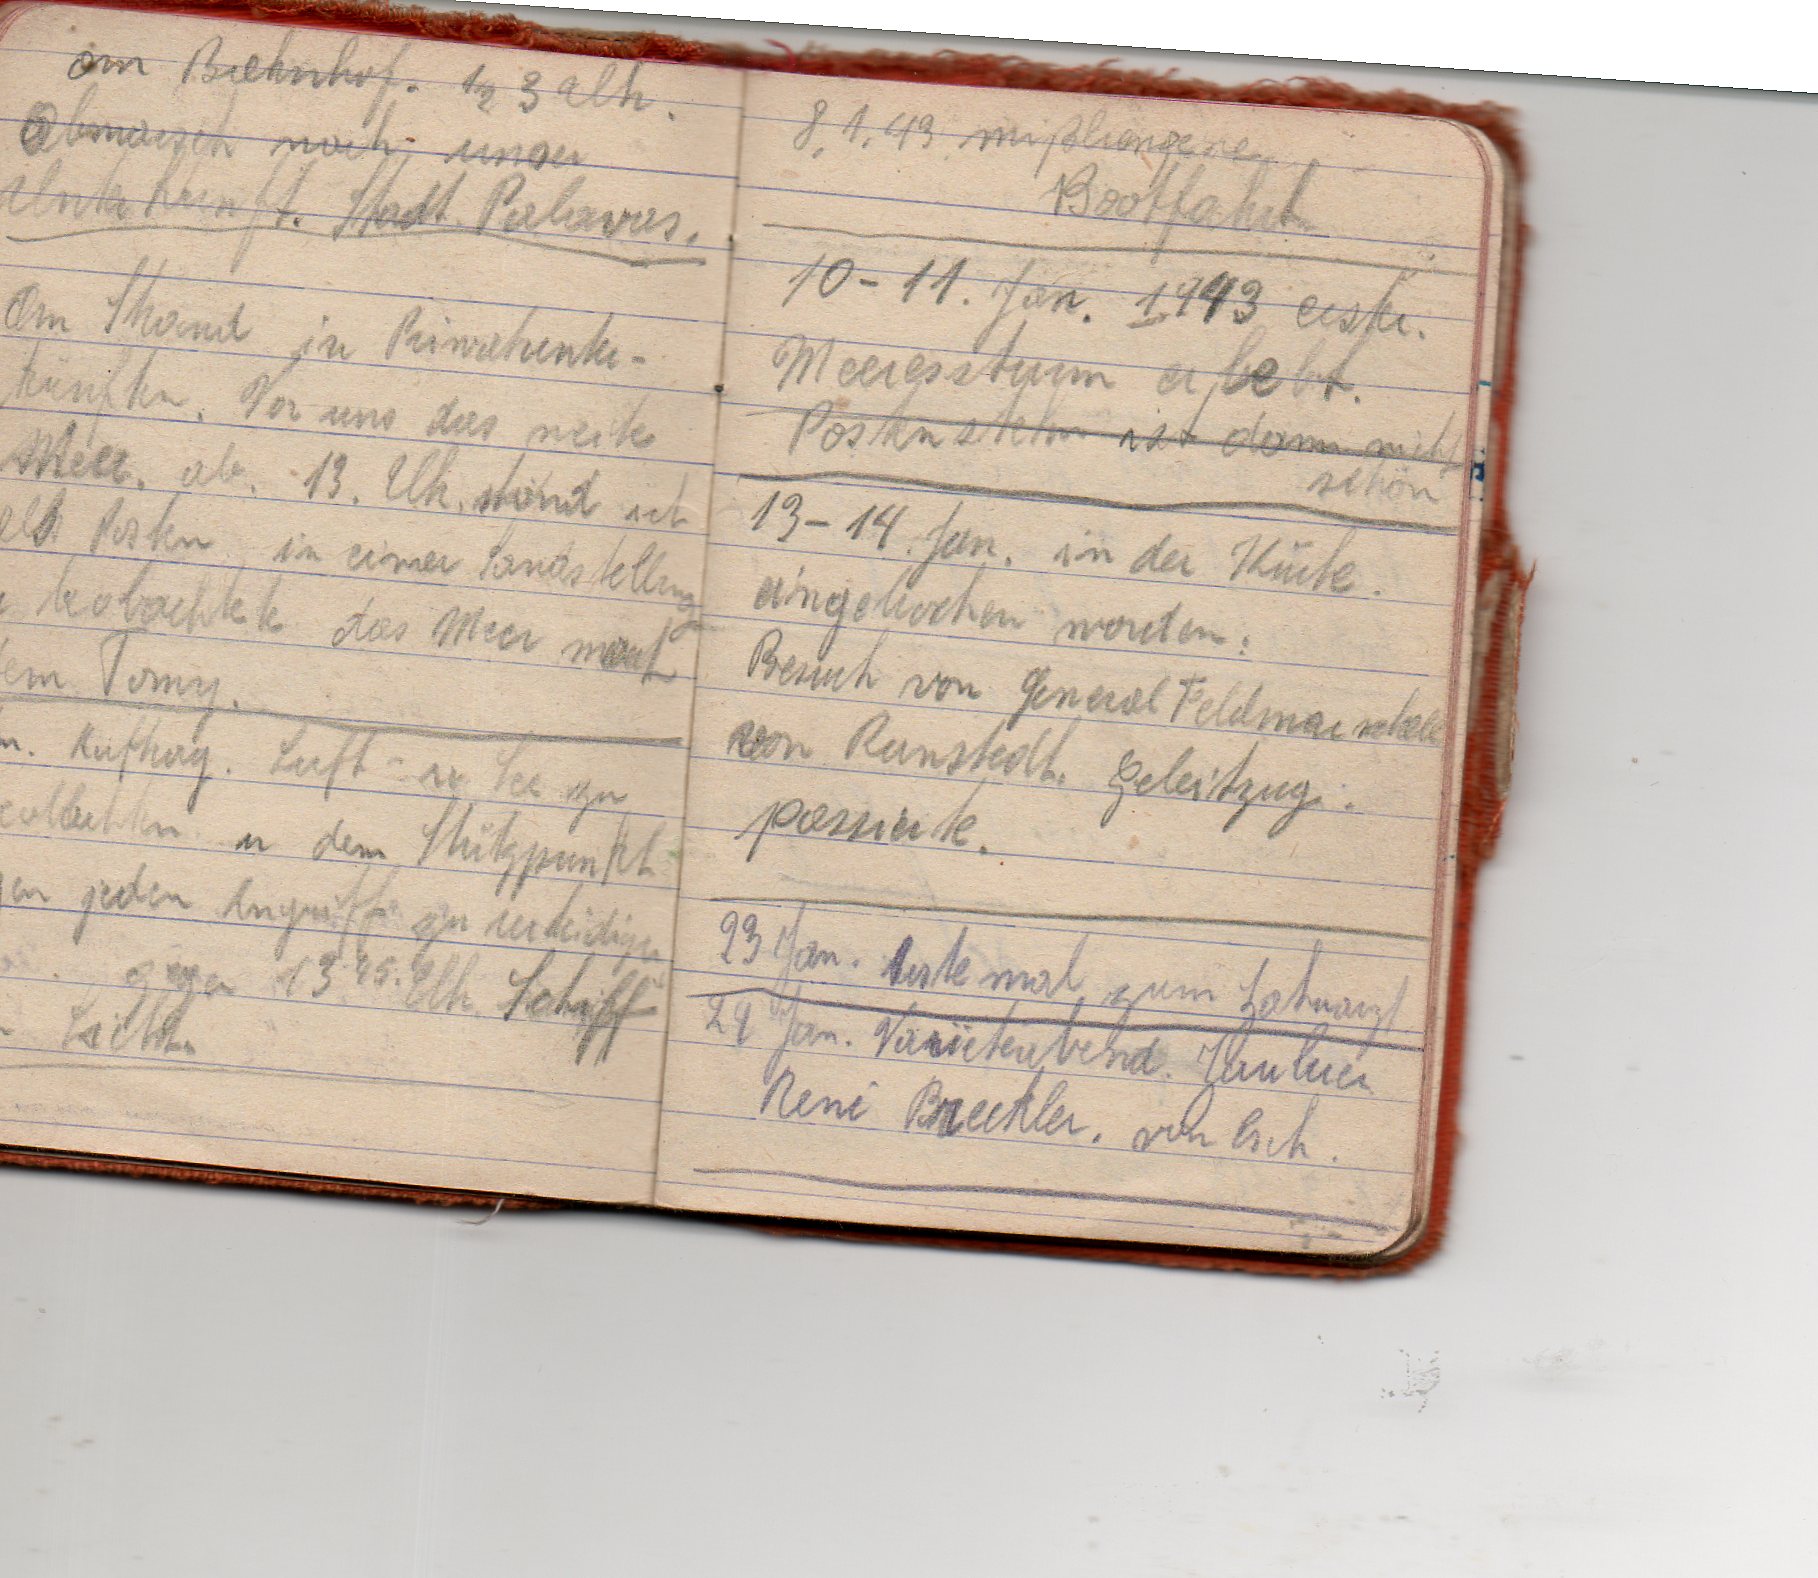 am Bahnhof. 1/2 3 Uhr.
Abmarsch nach unser
Unterkunft. Stadt Palavas.
Am Strand in Privatunter-
künften. Vor uns das weite
Meer. ab. 13. Uh. stand ich
als Posten in einer Sandstellung
u beobachtete das Meer nach
dem Tomy.
Luft- u See zu
beobachten u dem Stützpunkt
gen jeden Angriff zu verteidigen
gegen 13 45. Uh. Schiff
n Sicht.
8. 1. 43 mißlungene
Bootfahrt
10-11. Jan. 1943 erster.
Meeressturm erlebt.
Postenstehn ist dann nicht
schön
13-14. Jan. in der Küche.
eingebrochen worden.
Besuch von General Feldmarschall
von Runstedt. Geleitzug.
passierte.
23 Jan. erste mal zum Zahnarzt
24 Jan. Varieteabend.
René von Esch.